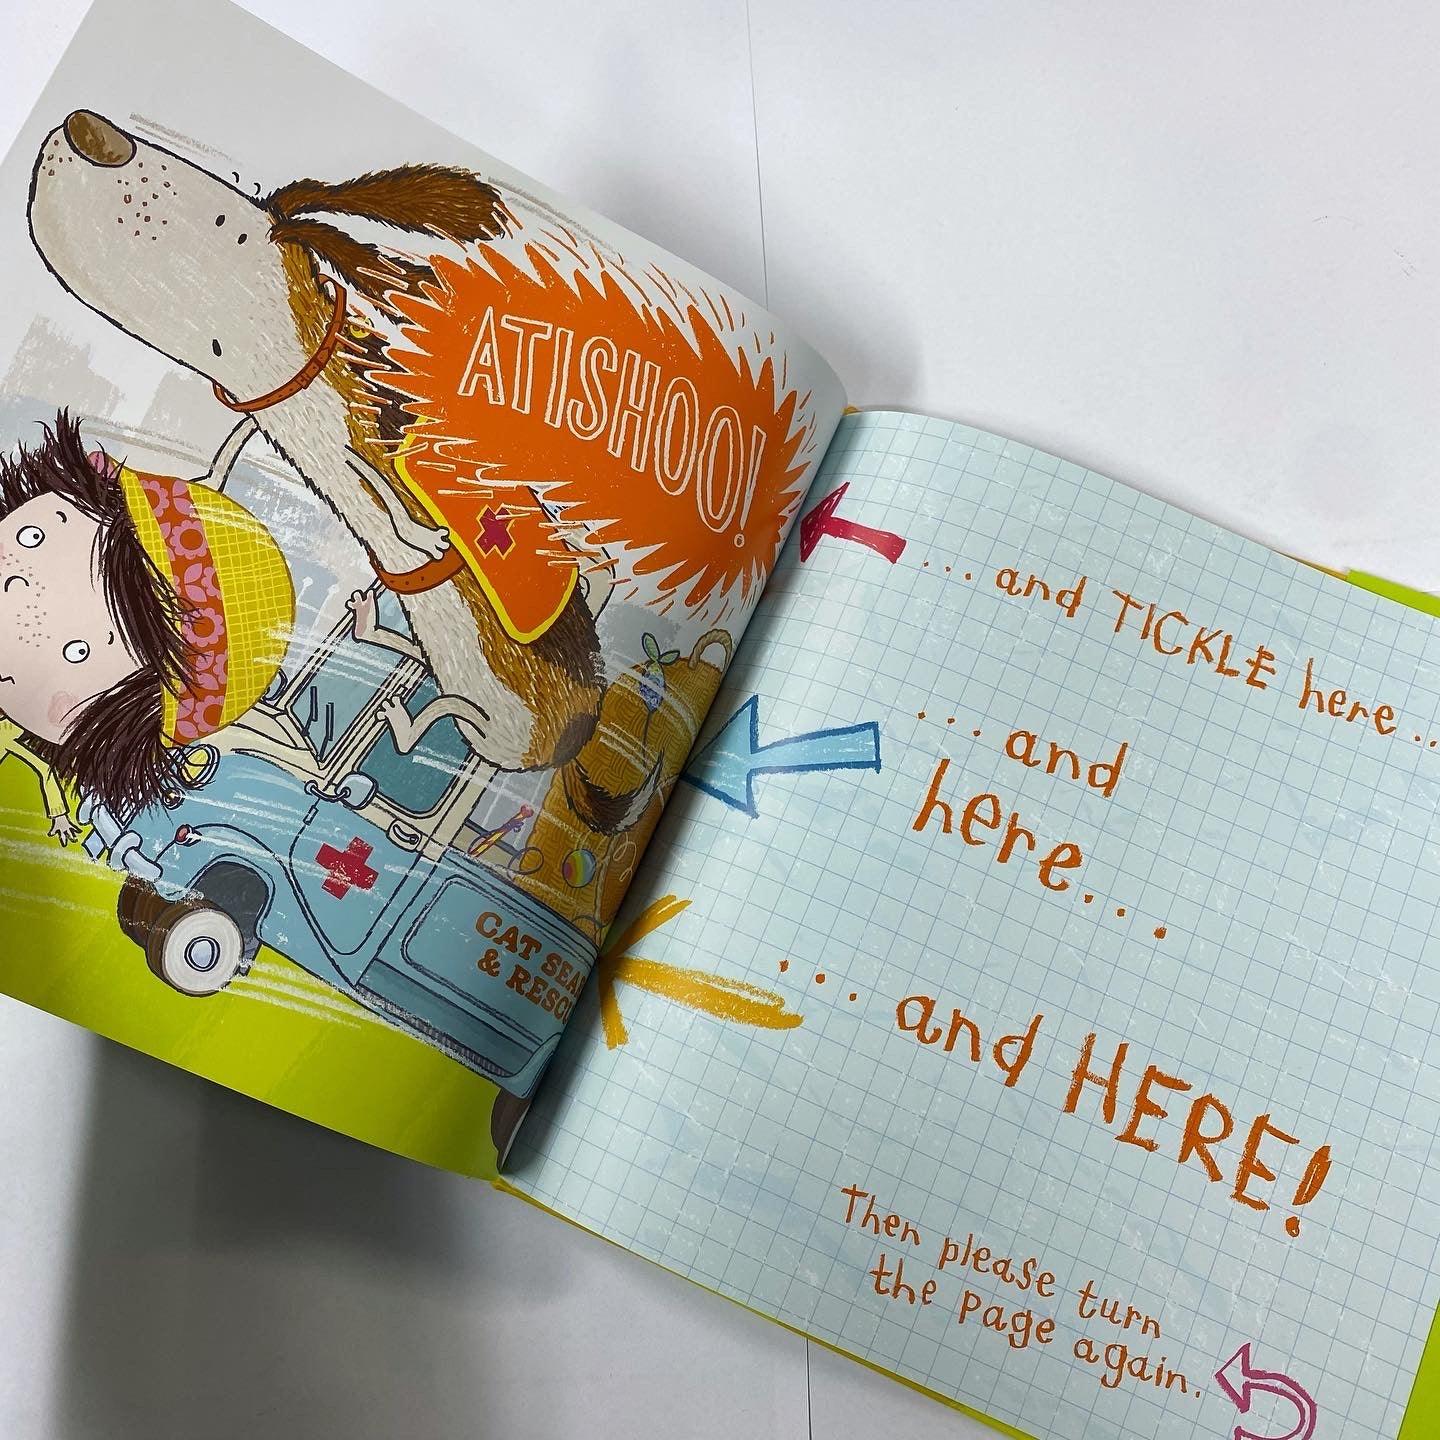 ATISHOO!
CAT SEA
& RESCU
... and TICKLE here ..
... and
here...
... and HERE!
Then please turn
the page again.